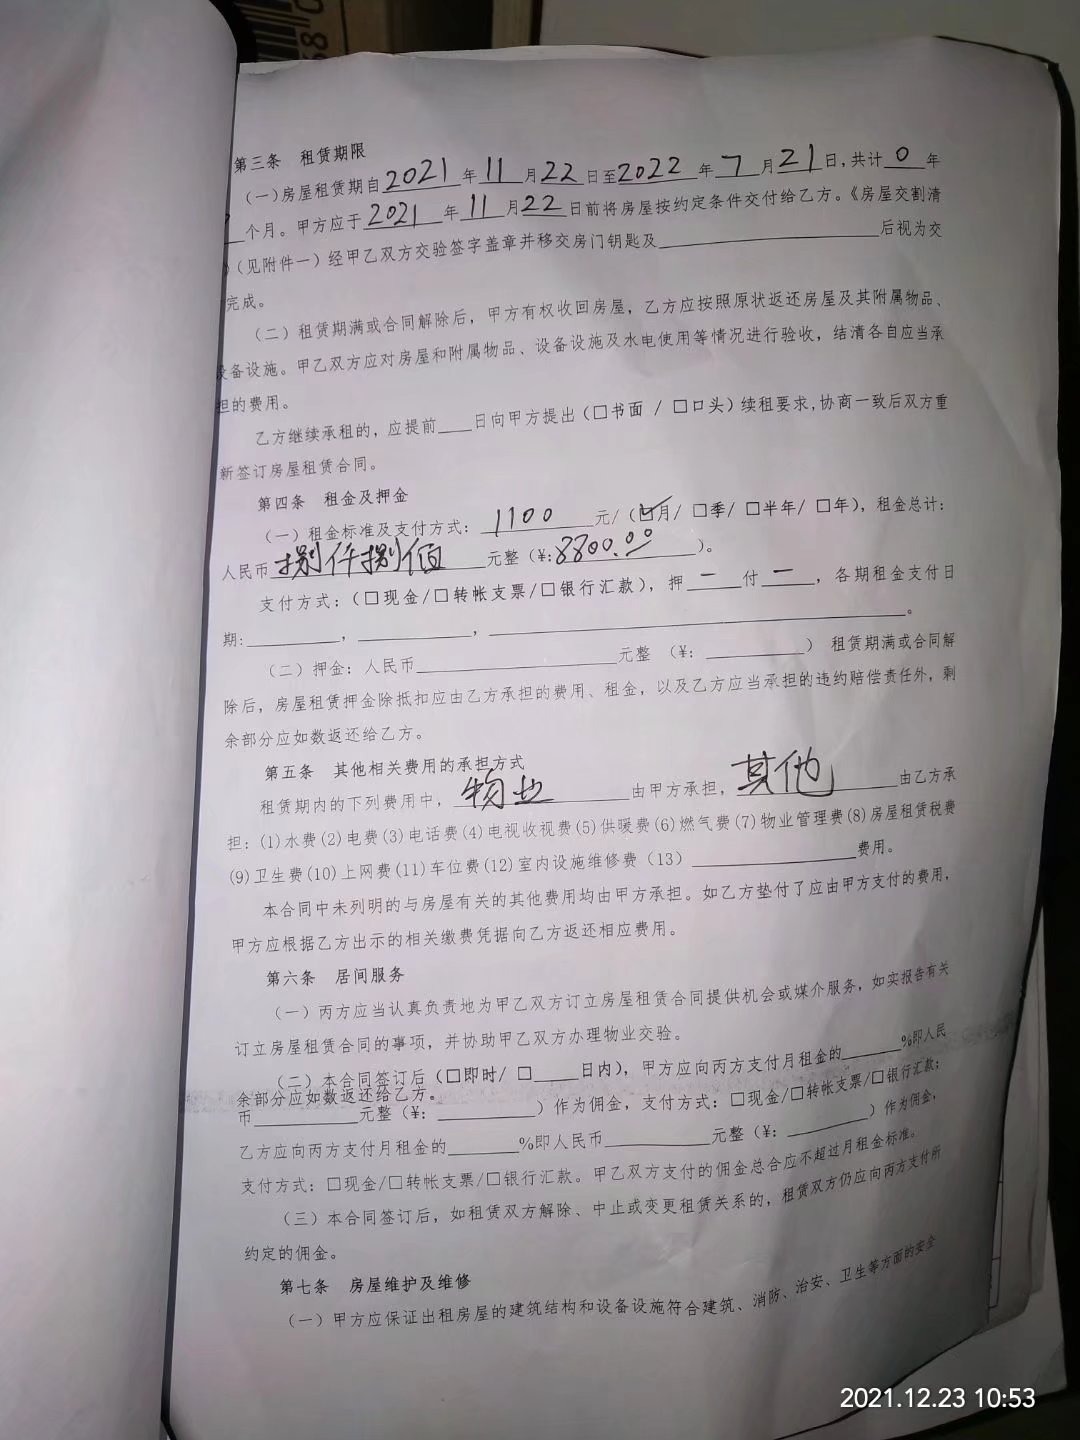 第三条 租赁期限
(一)房屋租赁期自2021年11月22日至2022年7月21日,共计0年
个月。甲方应于2021年11月22日前将房屋按约定条件交付给乙方。《房屋交割清
(见附件一)经甲乙双方交验签字盖章并移交房门钥匙及______后视为交
完成。
(二)租赁期满或合同解除后,甲方有权收回房屋,乙方应按照原状返还房屋及其附属物品、
设备设施。甲乙双方应对房屋和附属物品、设备设施及水电使用等情况进行验收,结清各自应当承
担的费用。
乙方继续承租的,应提前____日向甲方提出(□书面 / □口头)续租要求,协商一致后双方重
新签订房屋租赁合同。
第四条 租金及押金
(一)租金标准及支付方式:1100元/(☑月/ □季/ □半年/ □年),租金总计:
人民币捌仟捌佰元整(¥:8800.00)。
支付方式:(□现金/□转帐支票/□银行汇款),押一付一,各期租金支付日
期:______,______,______。
(二)押金:人民币______元整 (¥:______) 租赁期满或合同解
除后,房屋租赁押金除抵扣应由乙方承担的费用、租金,以及乙方应当承担的违约赔偿责任外,剩
余部分应如数返还给乙方。
第五条 其他相关费用的承担方式
租赁期内的下列费用中,物业由甲方承担,其他由乙方承
担:(1)水费(2)电费(3)电话费(4)电视收视费(5)供暖费(6)燃气费(7)物业管理费(8)房屋租赁税费
(9)卫生费(10)上网费(11)车位费(12)室内设施维修费(13)______费用。
本合同中未列明的与房屋有关的其他费用均由甲方承担。如乙方垫付了应由甲方支付的费用,
甲方应根据乙方出示的相关缴费凭据向乙方返还相应费用。
第六条 居间服务
(一)丙方应当认真负责地为甲乙双方订立房屋租赁合同提供机会或媒介服务,如实报告有关
订立房屋租赁合同的事项,并协助甲乙双方办理物业交验。
(二)本合同签订后(□即时/ □____日内),甲方应向丙方支付月租金的____%即人民
余部分应如数返还给乙方。
币______元整(¥:______)作为佣金,支付方式:□现金/□转帐支票/□银行汇款;
乙方应向丙方支付月租金的____%即人民币______元整(¥:______)作为佣金,
支付方式:□现金/□转帐支票/□银行汇款。甲乙双方支付的佣金总合应不超过月租金标准。
(三)本合同签订后,如租赁双方解除、中止或变更租赁关系的,租赁双方仍应向丙方支付所
约定的佣金。
第七条 房屋维护及维修
(一)甲方应保证出租房屋的建筑结构和设备设施符合建筑、消防、治安、卫生等方面的安全
2021.12.23 10:53